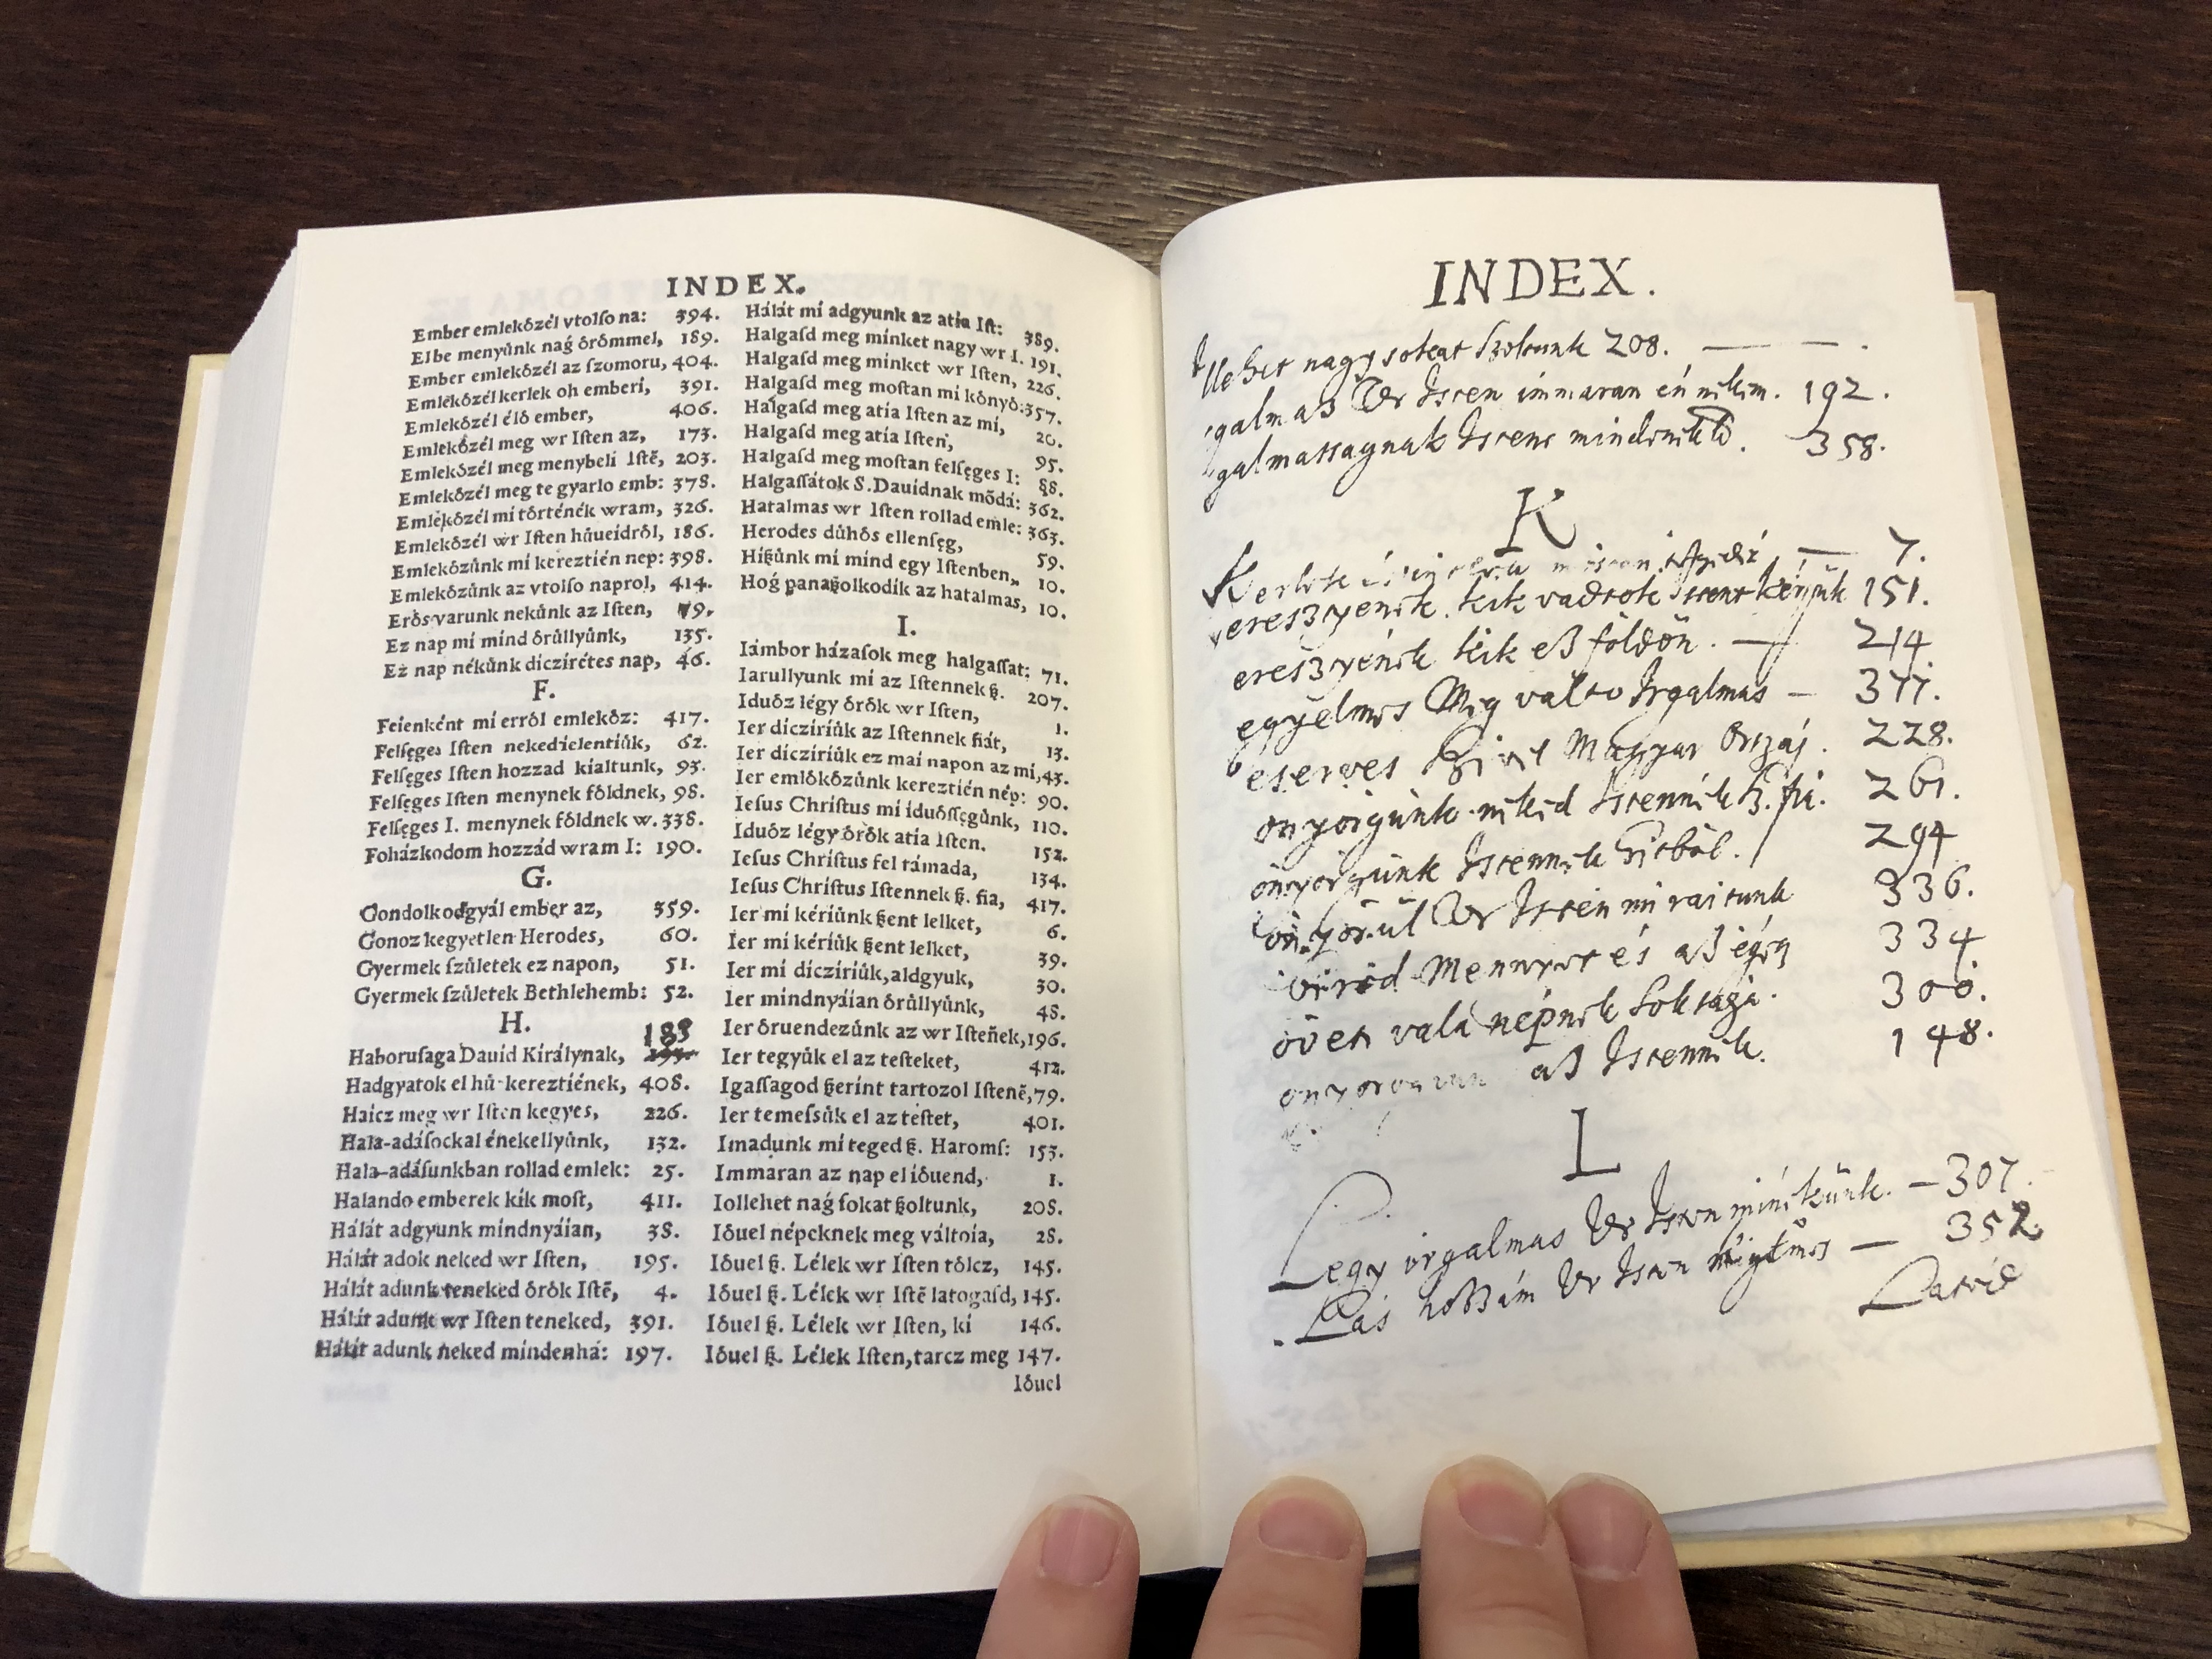 INDEX.
Ember emlekózél vtolſo na: 394.
Elbe menyůnk naǵ órómmel, 189.
Ember emlekózél az ſzomoru, 404.
Emlékózél kerlek oh emberi, 391.
Emlekózél éló ember, 406.
Emlekózél meg wr Iſten az, 173.
Emlekózél meg menybeli Iſtẽ, 203.
Emlekózél meg te gyarlo emb: 378.
Emlékózél mi tórténék wram, 326.
Emlekózél wr Iſten hůueidról, 186.
Emlekózůnk mi kereztién nep: 398.
Emlekózůnk az vtolſo naprol, 414.
Erós varunk nekůnk az Iſten, 79.
Ez nap mi mind órůllyůnk, 135.
Ez nap nékůnk diczirétes nap, 46.
F.
Feienként mi erról emlekóz: 417.
Felſęges Iſten nekedielentiůk, 62.
Felſęges Iſten hozzad kialtunk, 93.
Felſęges Iſten menynek fóldnek, 98.
Felſęges I. menynek fóldnek w. 338.
Foházkodom hozzád wram I: 190.
G.
Gondolkodgyál ember az, 359.
Gonoz kegyetlen Herodes, 60.
Gyermek ſzůletek ez napon, 51.
Gyermek ſzůletek Bethlehemb: 52.
H.
183
Haboruſaga Dauid Királynak,
Hadgyatok el hů kereztiének, 408.
Haicz meg wr Iſten kegyes, 226.
Hala-adáſockal énekellyůnk, 132.
Hala-adáſunkban rollad emlek: 25.
Halando emberek kik moſt, 411.
Hálát adgyunk mindnyáian, 38.
Hálát adok neked wr Iſten, 195.
Hálát adunk teneked órók Iſtẽ, 4.
Hálát adunk wr Iſten teneked, 391.
Hálát adunk neked mindenhá: 197.
Hálát mi adgyunk az atia Iſt: 389.
Halgaſd meg minket nagy wr I. 191.
Halgaſd meg minket wr Iſten, 226.
Halgaſd meg moſtan mi kónyó: 357.
Halgaſd meg atia Iſten az mi, 20.
Halgaſd meg atia Iſten, 95.
Halgaſd meg moſtan felſęges I: 88.
Halgaſſátok S. Dauidnak mõdá: 362.
Hatalmas wr Iſten rollad emle: 363.
Herodes důhós ellenſęg, 59.
Hißůnk mi mind egy Iſtenben, 10.
Hoǵ panaßolkodik az hatalmas, 10.
I.
Iámbor házaſok meg halgaſſat: 71.
Iarullyunk mi az Iſtennek ß. 207.
Iduóz légy órók wr Iſten, 1.
Ier dicziriůk az Iſtennek fiát, 13.
Ier dicziriůk ez mai napon az mi, 43.
Ier emlókózůnk kereztién nép: 90.
Ieſus Chriſtus mi iduóſſęgůnk, 110.
Iduóz légy órók atia Iſten. 152.
Ieſus Chriſtus fel támada, 134.
Ieſus Chriſtus Iſtennek ß. fia, 417.
Ier mi kériůnk ßent lelket, 6.
Ier mi kériůk ßent lelket, 39.
Ier mi dicziriůk, aldgyuk, 30.
Ier mindnyáian órůllyůnk, 48.
Ier óruendezůnk az wr Iſteñek, 196.
Ier tegyůk el az teſteket, 412.
Igaſſagod ßerint tartozol Iſtenẽ, 79.
Ier temeſsůk el az teſtet, 401.
Imadunk mi teged ß. Haromſ: 153.
Immáran az nap el ióuend, 1.
Iollehet naǵ ſokat ßoltunk, 208.
Ióuel népeknek meg váltoia, 28.
Ióuel ß. Lélek wr Iſten tólcz, 145.
Ióuel ß. Lélek wr Iſtẽ latogaſd, 145.
Ióuel ß. Lélek wr Iſten, ki 146.
Ióuel ß. Lélek Iſten, tarcz meg 147.
Ióuel
INDEX.
llehet nagy sokat szoltunk 208.
galmaß Vr Isten immaran én nekem. 192.
galmassagnak Istene 358.
K
7.
eresztyenek kik vadtok Istent kérjük 151.
eresztyének kik eß földön. 214.
egyelmes Meg valto Irgalmas 377.
eserves Szivel Magyar Ország. 228.
önyörgünk nekéd Istennek ß. fia. 261.
önyörgünk Istennek 294
önyörül Vr Isten mi raitunk 336.
Mennyet és aß 334
övet vala népnek soksága. 300.
aß Istennek. 148.
L
Legy irgalmas Vr Isten minékünk. 307.
Lás hoßám Vr Isten 352.